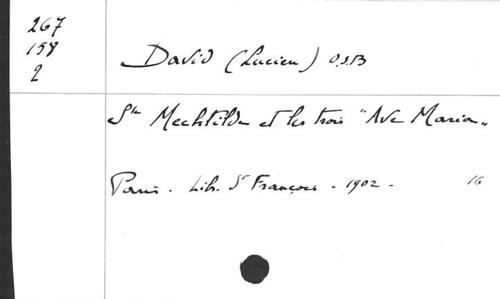 267
158
2
David (Lucien) O.S.B
Ste Mechtilde et les trois "Ave Maria"
Paris - Lib. St François - 1902 - 16